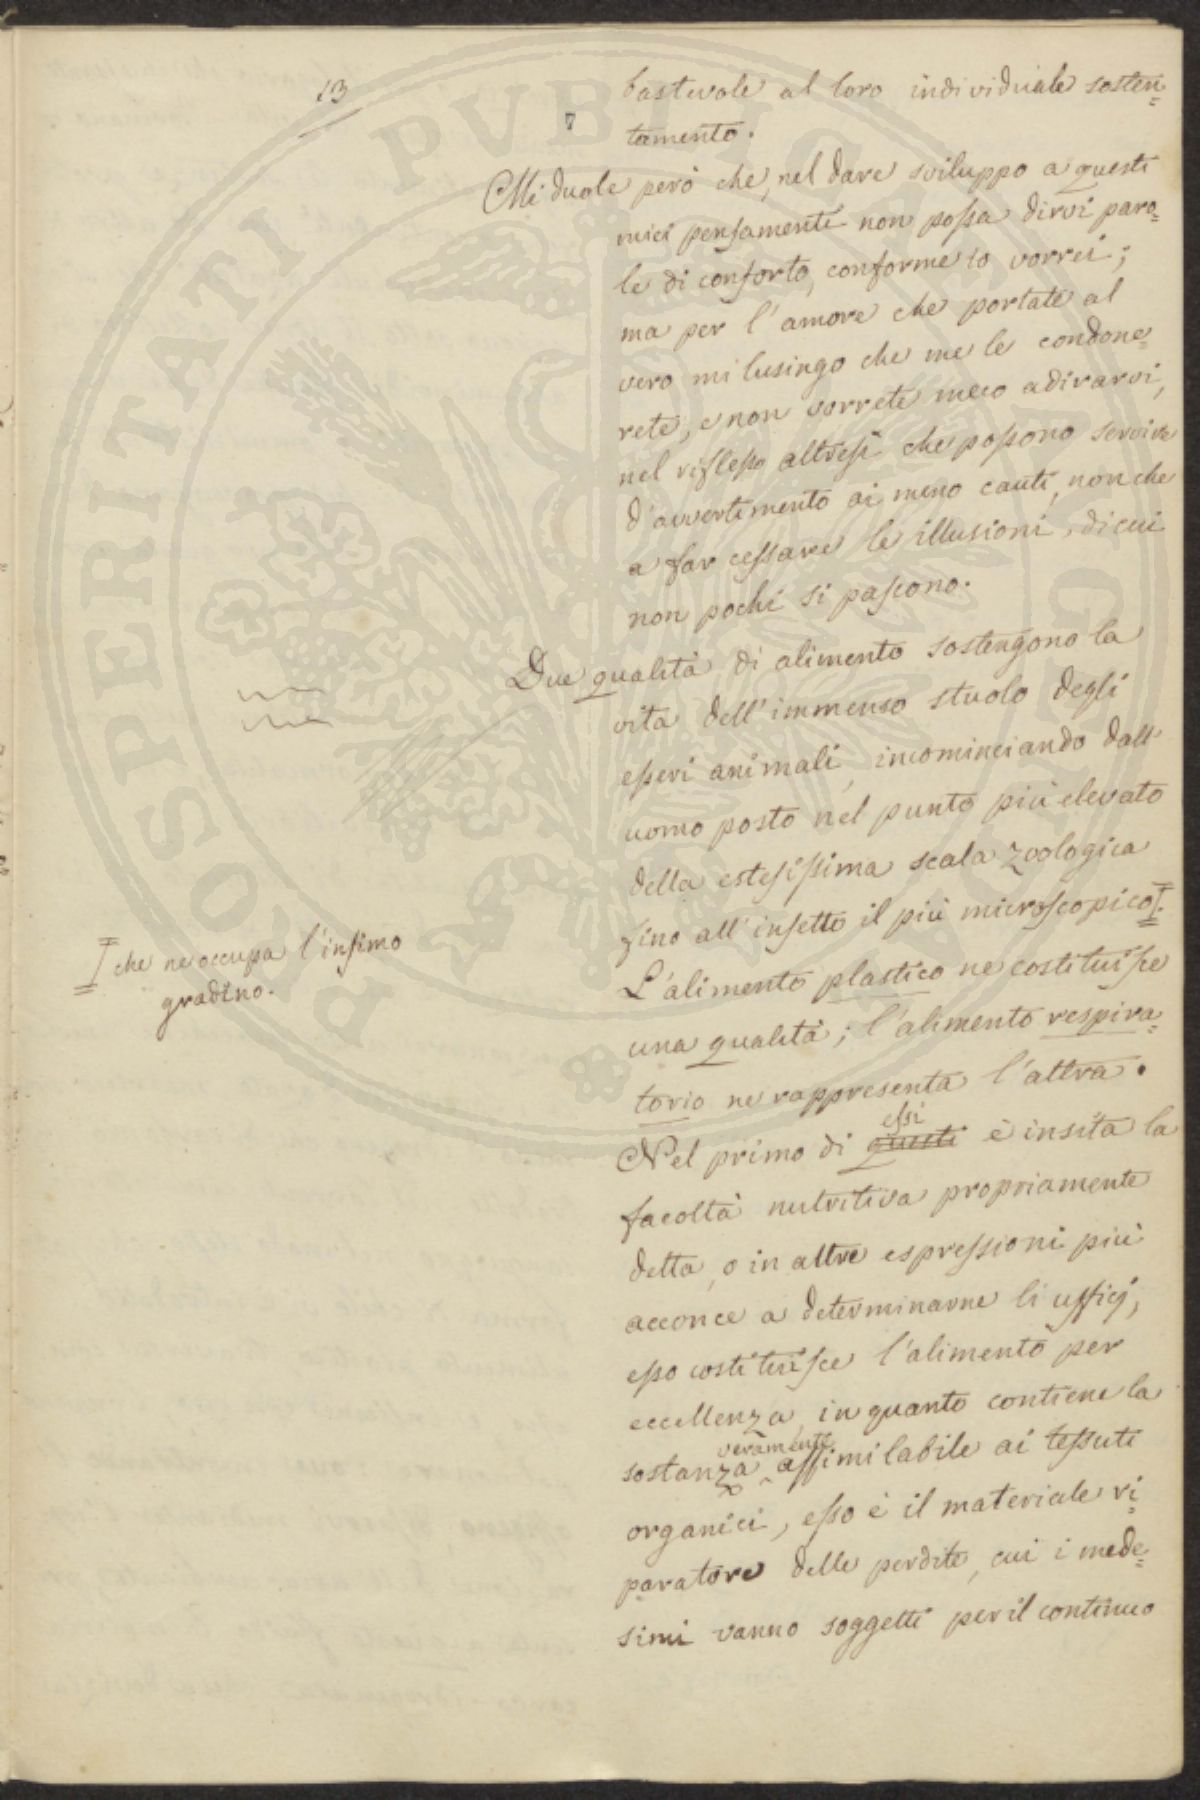 13
7
bastevole al loro individuale sosten=
tamento.
Mi duole però che, nel dare sviluppo a questi
miei pensamenti non possa dirvi paro=
le di conforto, conforme io vorrei;
ma per l'amore che portate al
vero mi lusingo che me le condone=
rete, e non vorrete meco adirarvi,
nel riflesso altresì che possono servire
d'avvertimento ai meno cauti, nonche
a far cessare le illusioni, di cui
non pochi si pascono.
Due qualità di alimento sostengono la
vita dell'immenso stuolo degli
esseri animali, incominciando dall'
uomo posto nel punto più elevato
della estesissima scala zoologica
fino all'insetto il più microscopico.
che ne occupa l'infimo
gradino.
L'alimento plastico ne costituisce
una qualità; l'alimento respira=
torio ne rappresenta l'altra.
essi
Nel primo di questi è insita la
facoltà nutritiva propriamente
detta, o in altre espressioni più
acconce a determinarne li ufficj,
esso costituisce l'alimento per
eccellenza, in quanto contiene la
veramente
sostanza assimilabile ai tessuti
organici, esso è il materiale ri=
paratore delle perdite, cui i mede=
simi vanno soggetti per il continuo
PROSPERITATI PUBLICAE AUGENDAE